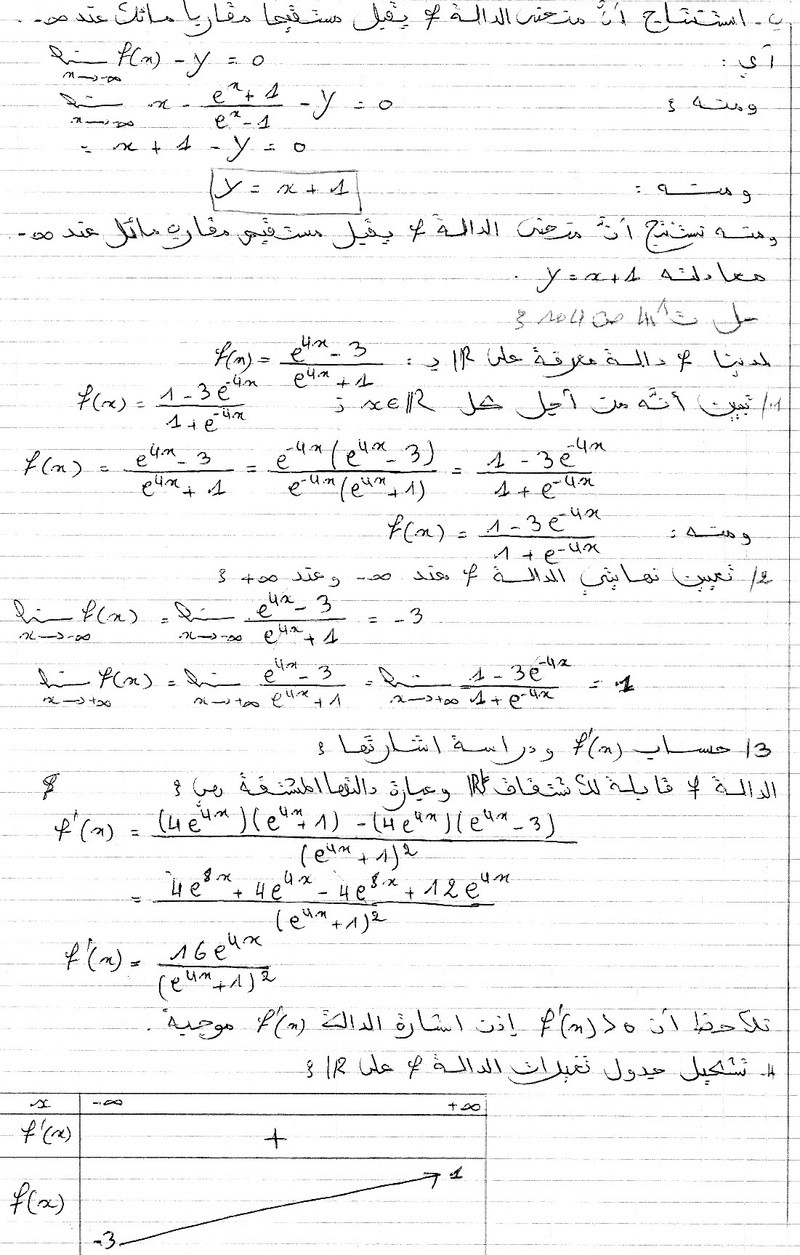 ب- استنتاج أنَّ منحنى الدالة f يقبل مستقيما مقاربا مائلا عند ∞-.
أي : lim x→-∞ f(x) - y = 0
ومنه : lim x→-∞ x - (e^x + 1)/(e^x - 1) - y = 0
= x + 1 - y = 0
ومنه : y = x + 1
ومنه نستنتج أنَّ منحنى الدالة f يقبل مستقيم مقارب مائل عند ∞-
معادلته y = x + 1 .
حل ت 41 ص 104 :
لدينا f دالة معرفة على ℝ بـ : f(x) = (e^{4x} - 3)/(e^{4x} + 1)
1/ تبيين أنّه من أجل كل x ∈ ℝ : f(x) = (1 - 3e^{-4x})/(1 + e^{-4x})
f(x) = (e^{4x} - 3)/(e^{4x} + 1) = (e^{-4x}(e^{4x} - 3))/(e^{-4x}(e^{4x} + 1)) = (1 - 3e^{-4x})/(1 + e^{-4x})
ومنه : f(x) = (1 - 3e^{-4x})/(1 + e^{-4x})
2/ تعيين نهايتي الدالة f عند ∞- وعند ∞+ :
lim x→-∞ f(x) = lim x→-∞ (e^{4x} - 3)/(e^{4x} + 1) = -3
lim x→+∞ f(x) = lim x→+∞ (e^{4x} - 3)/(e^{4x} + 1) = lim x→+∞ (1 - 3e^{-4x})/(1 + e^{-4x}) = 1
3/ حساب f'(x) ودراسة اشارتها :
الدالة f قابلة للاشتقاق ℝ وعبارة دالتها المشتقة هي :
f'(x) = ((4e^{4x})(e^{4x} + 1) - (4e^{4x})(e^{4x} - 3))/(e^{4x} + 1)^2
= (4e^{8x} + 4e^{4x} - 4e^{8x} + 12e^{4x})/(e^{4x} + 1)^2
f'(x) = 16e^{4x}/(e^{4x} + 1)^2
نلاحظ أن f'(x) > 0 إذن اشارة الدالة f'(x) موجبة.
4- تشكيل جدول تغيرات الدالة f على ℝ :
x -∞ +∞
f'(x) +
f(x) -3 1